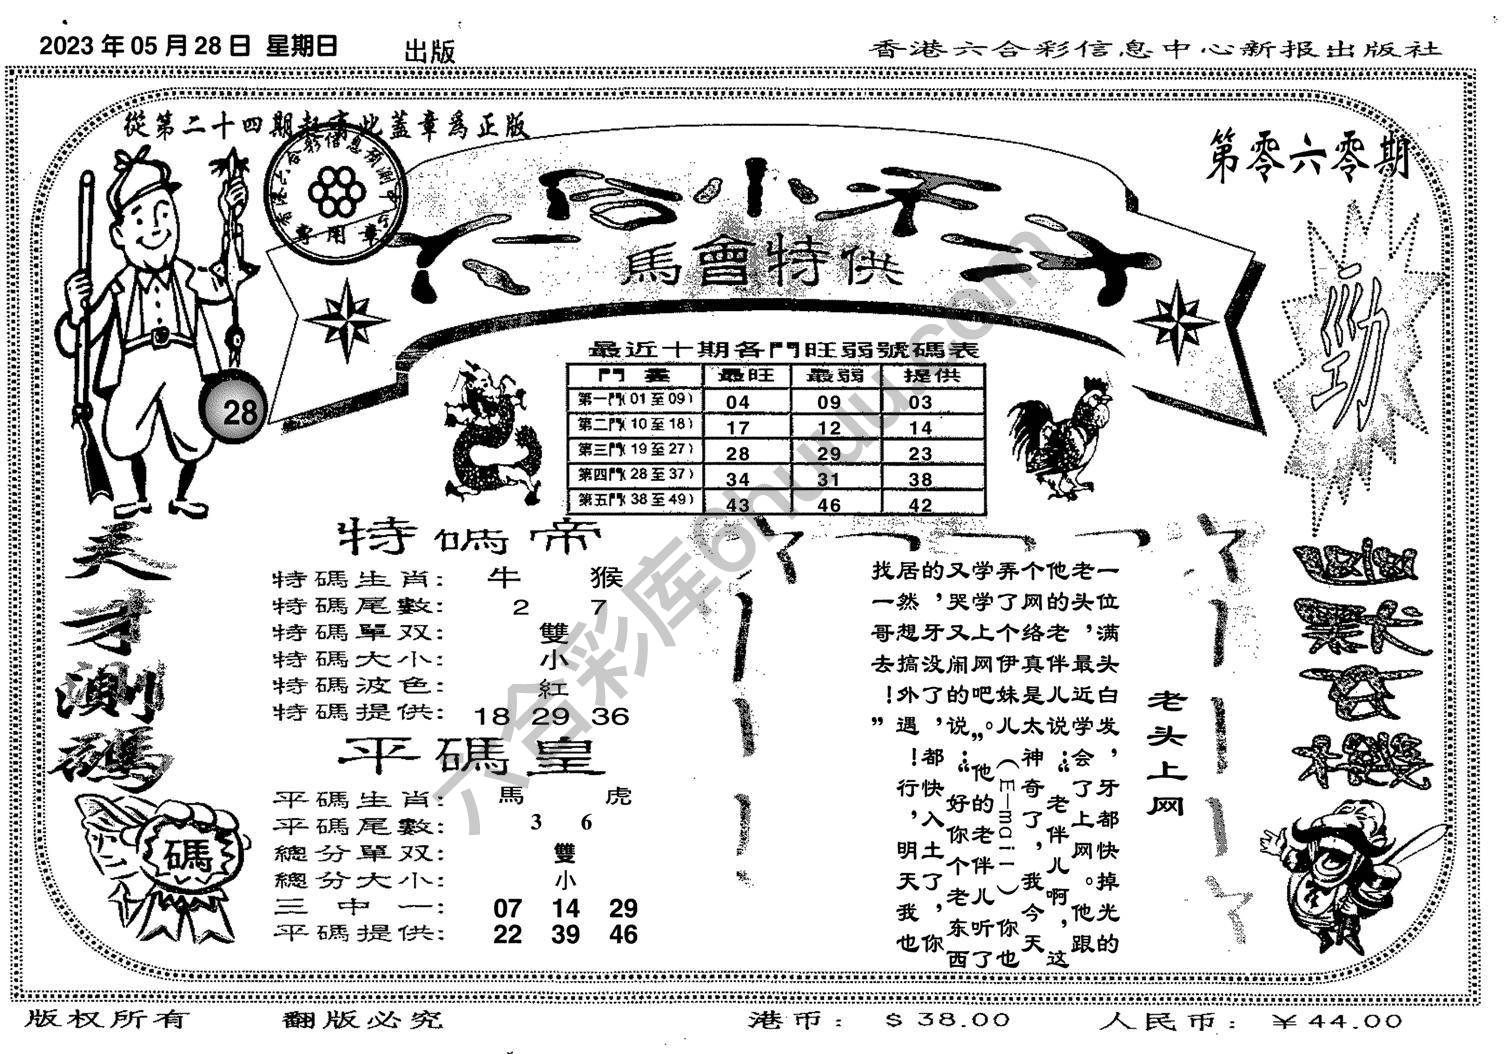 2023 年 05 月 28 日 星期日 出版 香港六合彩信息中心新报出版社
從第二十四期起有此蓋章爲正版
第零六零期
香港六合彩信息預測中心
專用章
六合小天才
馬會特供
勁
28
最近十期各門旺弱號碼表
最旺 最弱 提供
第一門(01至09) 04 09 03
第二門(10至18) 17 12 14
第三門(19至27) 28 29 23
第四門(28至37) 34 31 38
第五門(38至49) 43 46 42
天才測碼
碼
特碼帝
特碼生肖: 牛 猴
特碼尾數: 2 7
特碼單双: 雙
特碼大小: 小
特碼波色: 紅
特碼提供: 18 29 36
平碼皇
平碼生肖: 馬 虎
平碼尾數: 3 6
總分單双: 雙
總分大小: 小
三中一: 07 14 29
平碼提供: 22 39 46
老头上网
一位满头白发，牙都快掉光的
老头，最近学会了上网。他跟
他的老伴儿说：“老伴儿啊，这
个网络真是太神奇了，我今天
弄了个伊妹儿（E—mail）你也
学学上网吧。”他的老伴儿听了
又哭又闹的说：“好你个老东西
的，牙没了，都快入土了，你
居然想搞外遇！行，明天我也
找一哥去！”
六合彩库6huuu.com
版权所有 翻版必究 港币： $ 38.00 人民币： ￥44.00